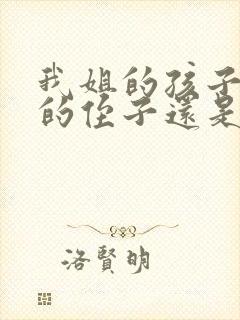 我姐的孩子
的侄子還是
洛賢明